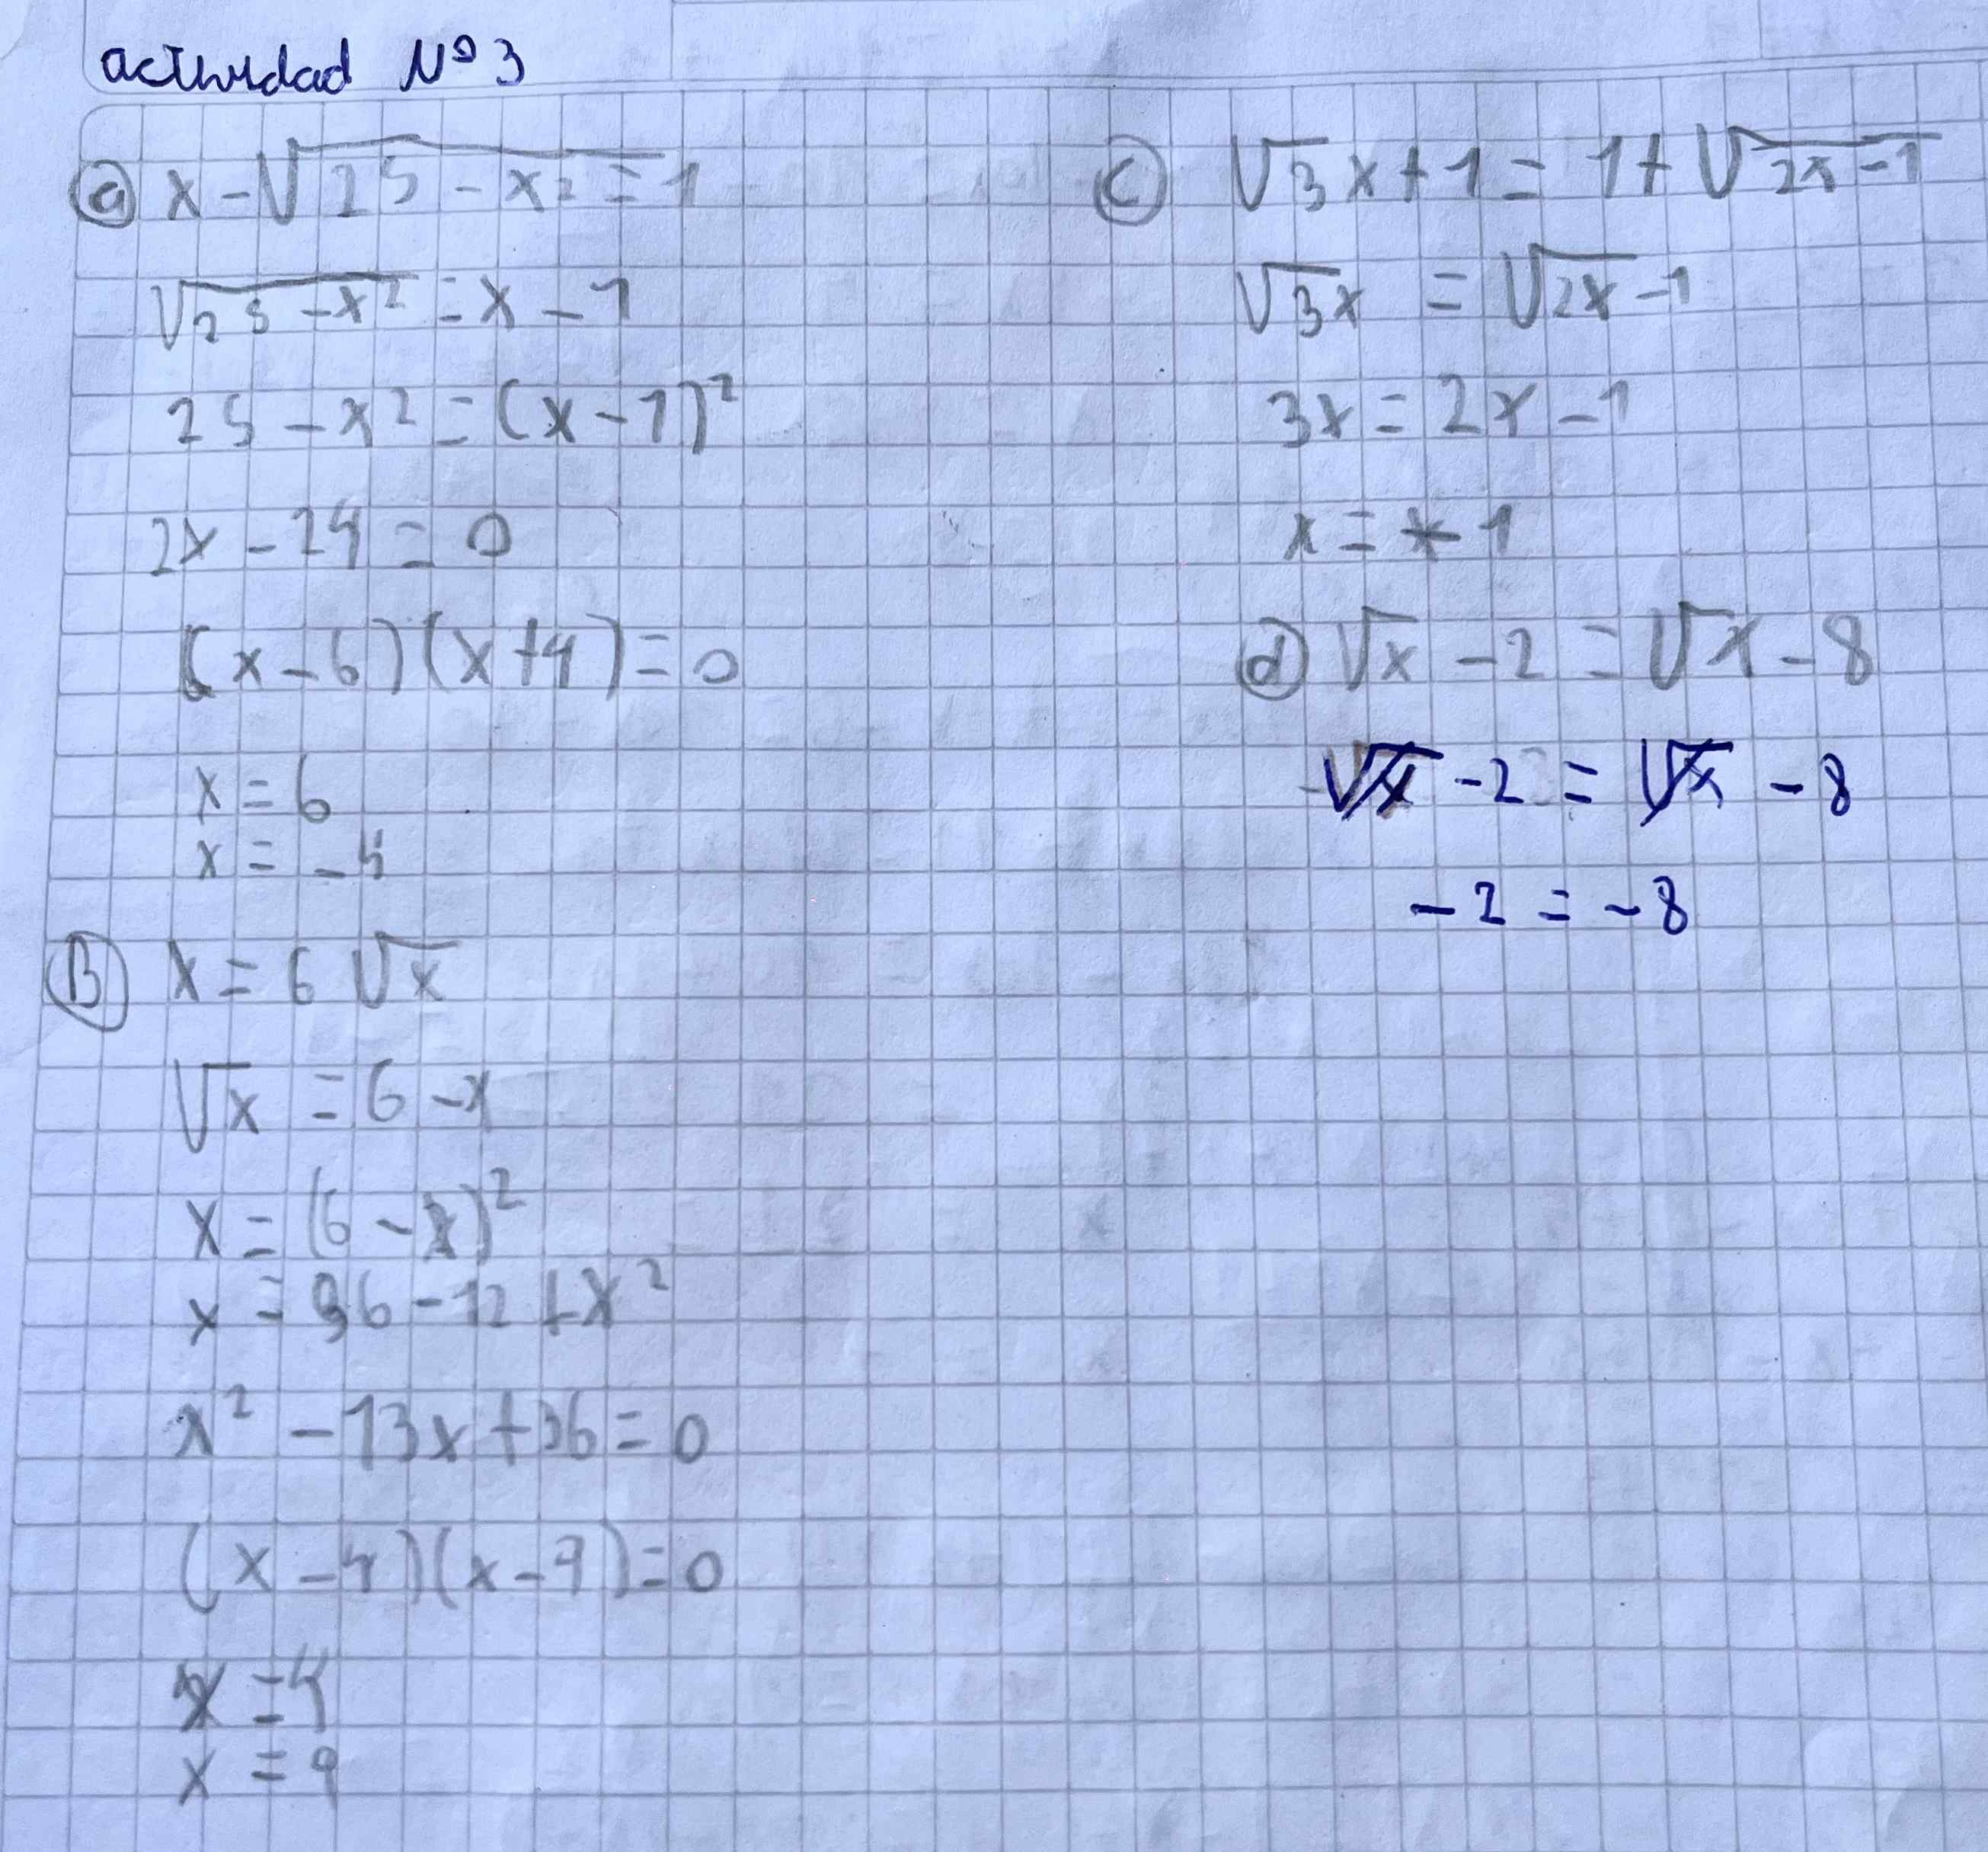 actividad Nº 3
a) x - √25 - x2 = 1
√25 - x² = x - 1
25 - x2 = (x - 1)²
2x - 24 = 0
(x - 6)(x + 4) = 0
x = 6
x = -4
B) x = 6 √x
√x = 6 - x
x = (6 - x)²
x = 36 - 12 + x²
x² - 13x + 36 = 0
(x - 4)(x - 9) = 0
x = 4
x = 9
c) √3x + 1 = 1 + √2x - 1
√3x = √2x - 1
3x = 2x - 1
x = - 1
d) √x - 2 = √x - 8
√x - 2 = √x - 8
- 2 = - 8